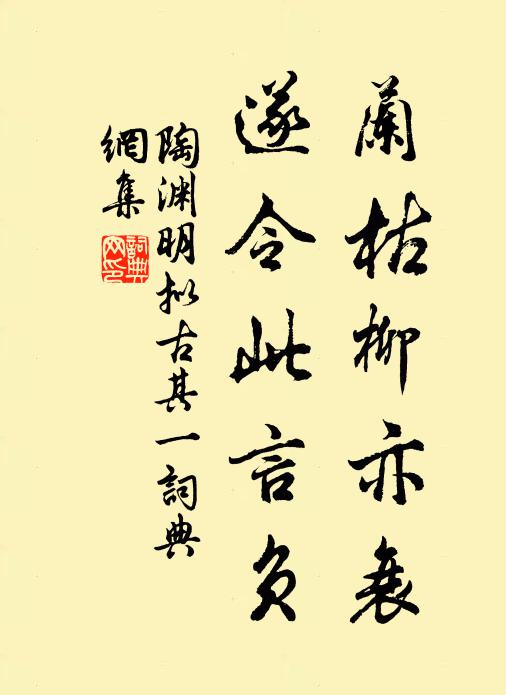 蘭枯柳亦衰
遂令此言負
陶渊明拟古其一詞典
網集
詞典
网印